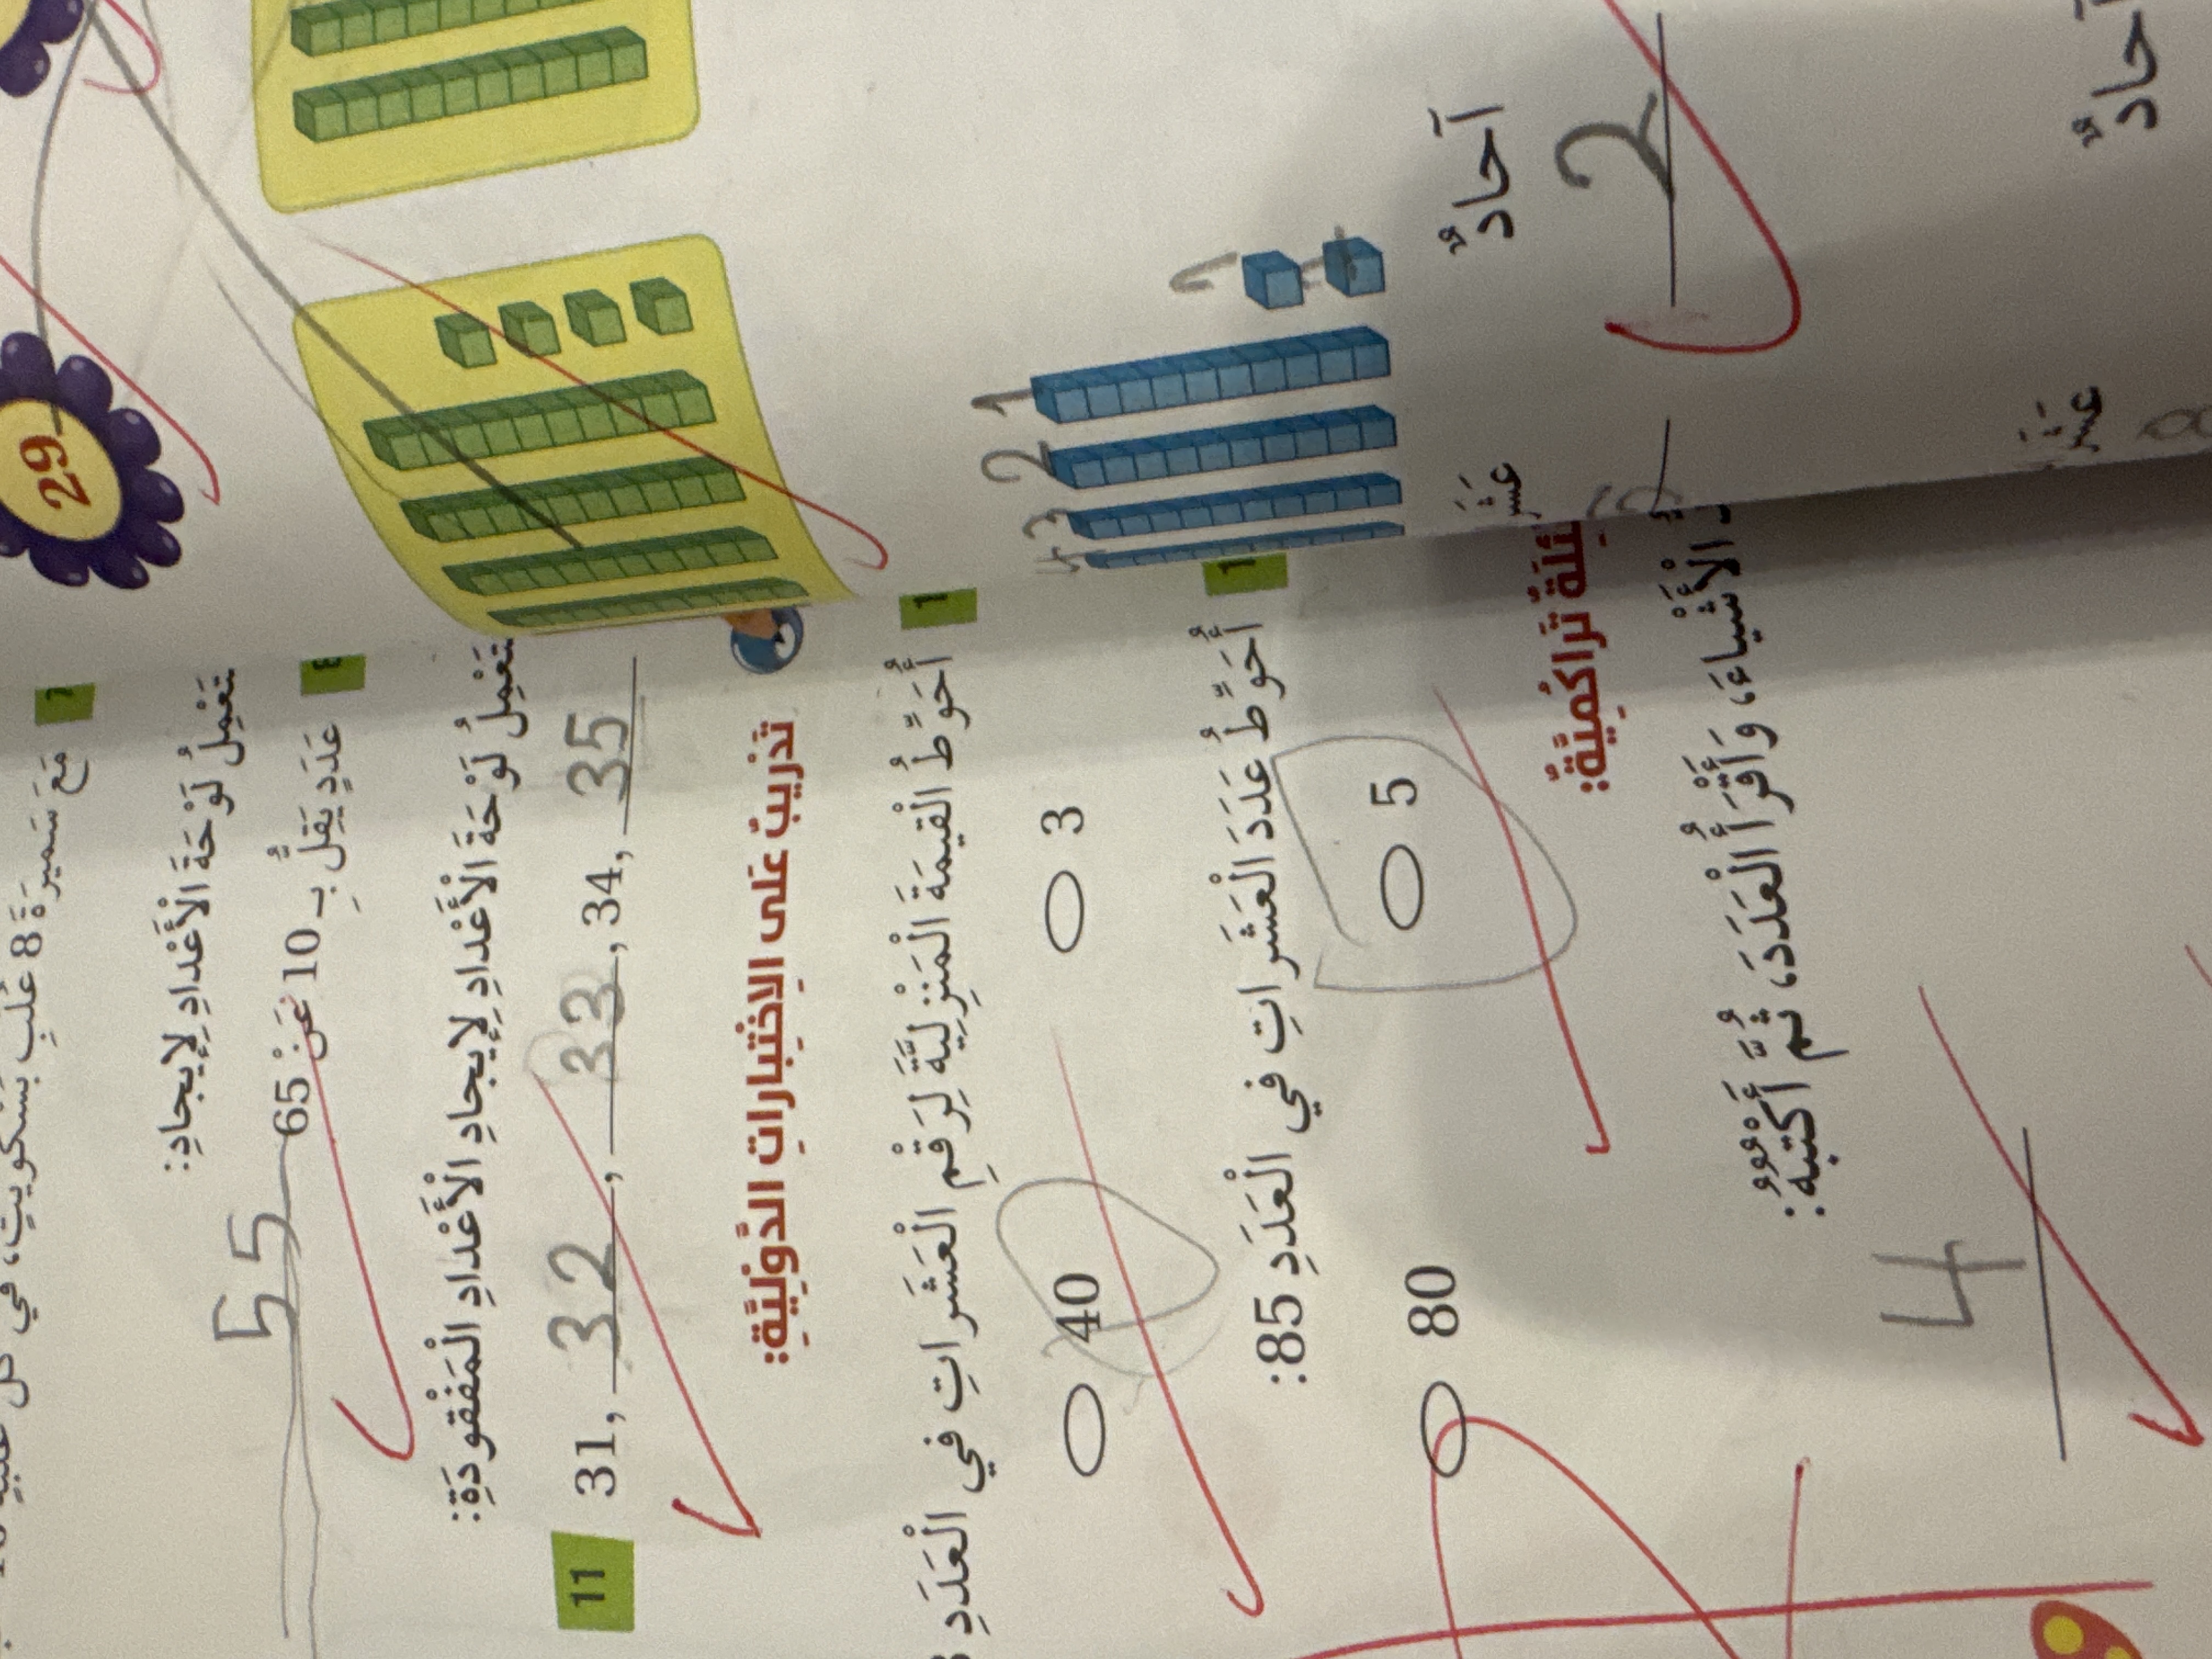 29
7
مَعَ سَميرَةَ 8 عُلَبِ بَسْكَويتٍ، في كُلِّ عُلْبَةٍ
لَوْحَةَ الْأَعْدادِ لِإيجادِ:
8
عَدَدٍ يَقِلُّ بِـ 10 عَنْ 65
55
لَوْحَةَ الْأَعْدادِ لِإيجادِ الْأَعْدادِ الْمَفْقودَةِ:
11
31, 32, 33, 34, 35
تَدْريبٌ عَلى الِاخْتِباراتِ الدَّوْلِيَّةِ:
أُحَوِّطُ الْقيمَةَ الْمَنْزِلِيَّةَ لِرَقْمِ الْعَشَراتِ في الْعَدَدِ
40
3
1 2 3 4
أُحَوِّطُ عَدَدَ الْعَشَراتِ في الْعَدَدِ 85:
80
5
تَراكُمِيَّةٌ:
الْأَشْياءَ، وَأَقْرَأُ الْعَدَدَ، ثُمَّ أَكْتُبُهُ:
4
آحادٌ
2
آحادٌ